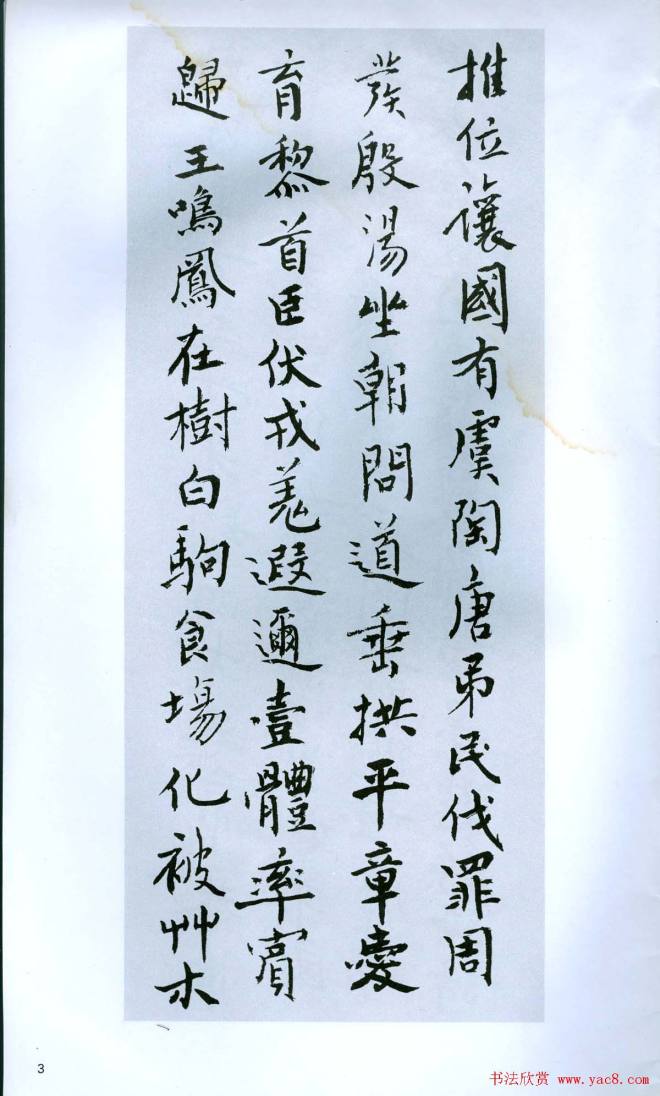 推位讓國有虞陶唐弔民伐罪周
發殷湯坐朝問道垂拱平章愛
育黎首臣伏戎羌遐邇壹體率賓
歸王鳴鳳在樹白駒食場化被艸木
3
书法欣赏 www.yac8.com